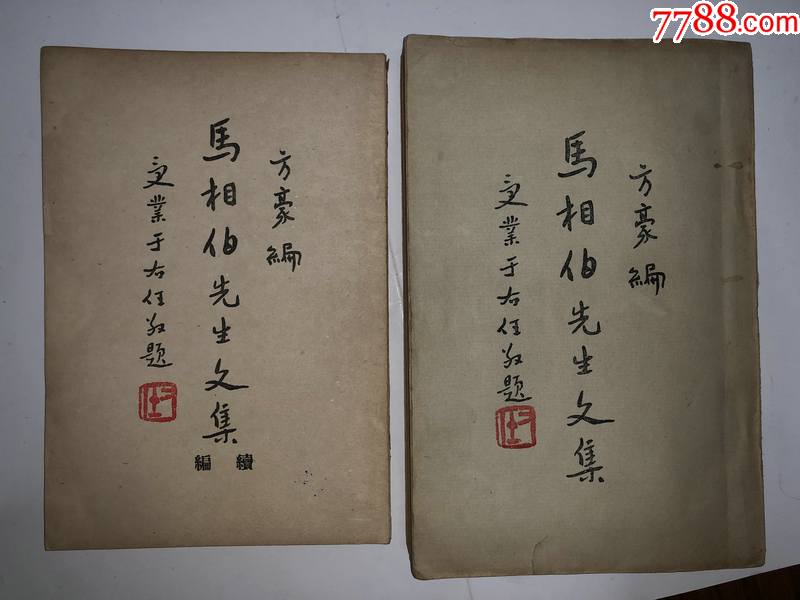 7788.com
方豪編
馬相伯先生文集
受業于右任敬題
續編
方豪編
馬相伯先生文集
受業于右任敬題